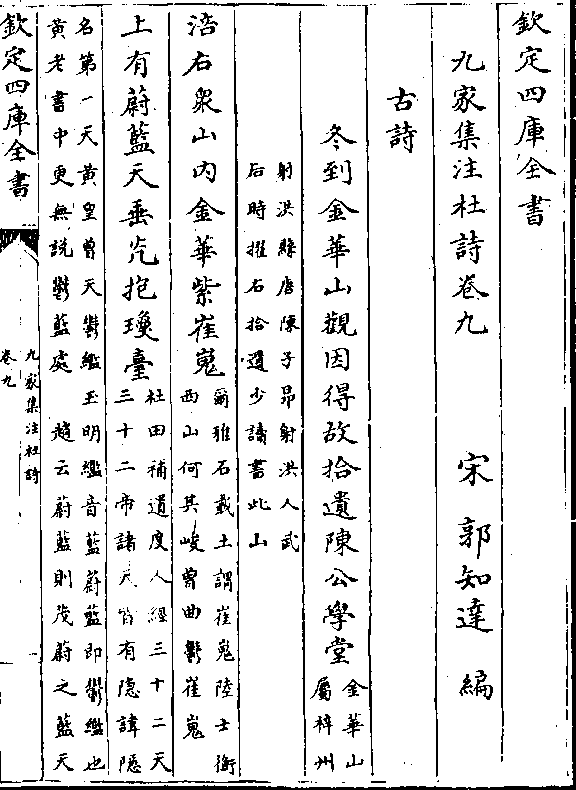 欽定四庫全書
九家集注杜詩卷九
宋 郭知達 編
古詩
冬到金華山觀因得故拾遺陳公學堂
金華山
屬梓州
射洪縣唐陳子昂射洪人武
后時擢右拾遺少讀書此山
涪右衆山内金華紫崔嵬
爾雅石載土謂崔嵬陸士衡
西山何其峻曾曲鬱崔嵬
上有蔚藍天垂光抱瓊臺
杜田補遺度人經三十二天
三十二帝諸天皆有隠諱隠
名第一天黄皇曾天鬱繿玉明繿音藍蔚藍即鬱繿也
黄老書中更無説鬱藍處 趙云蔚藍則茂蔚之藍天
欽定四庫全書
九家集注杜詩
卷九